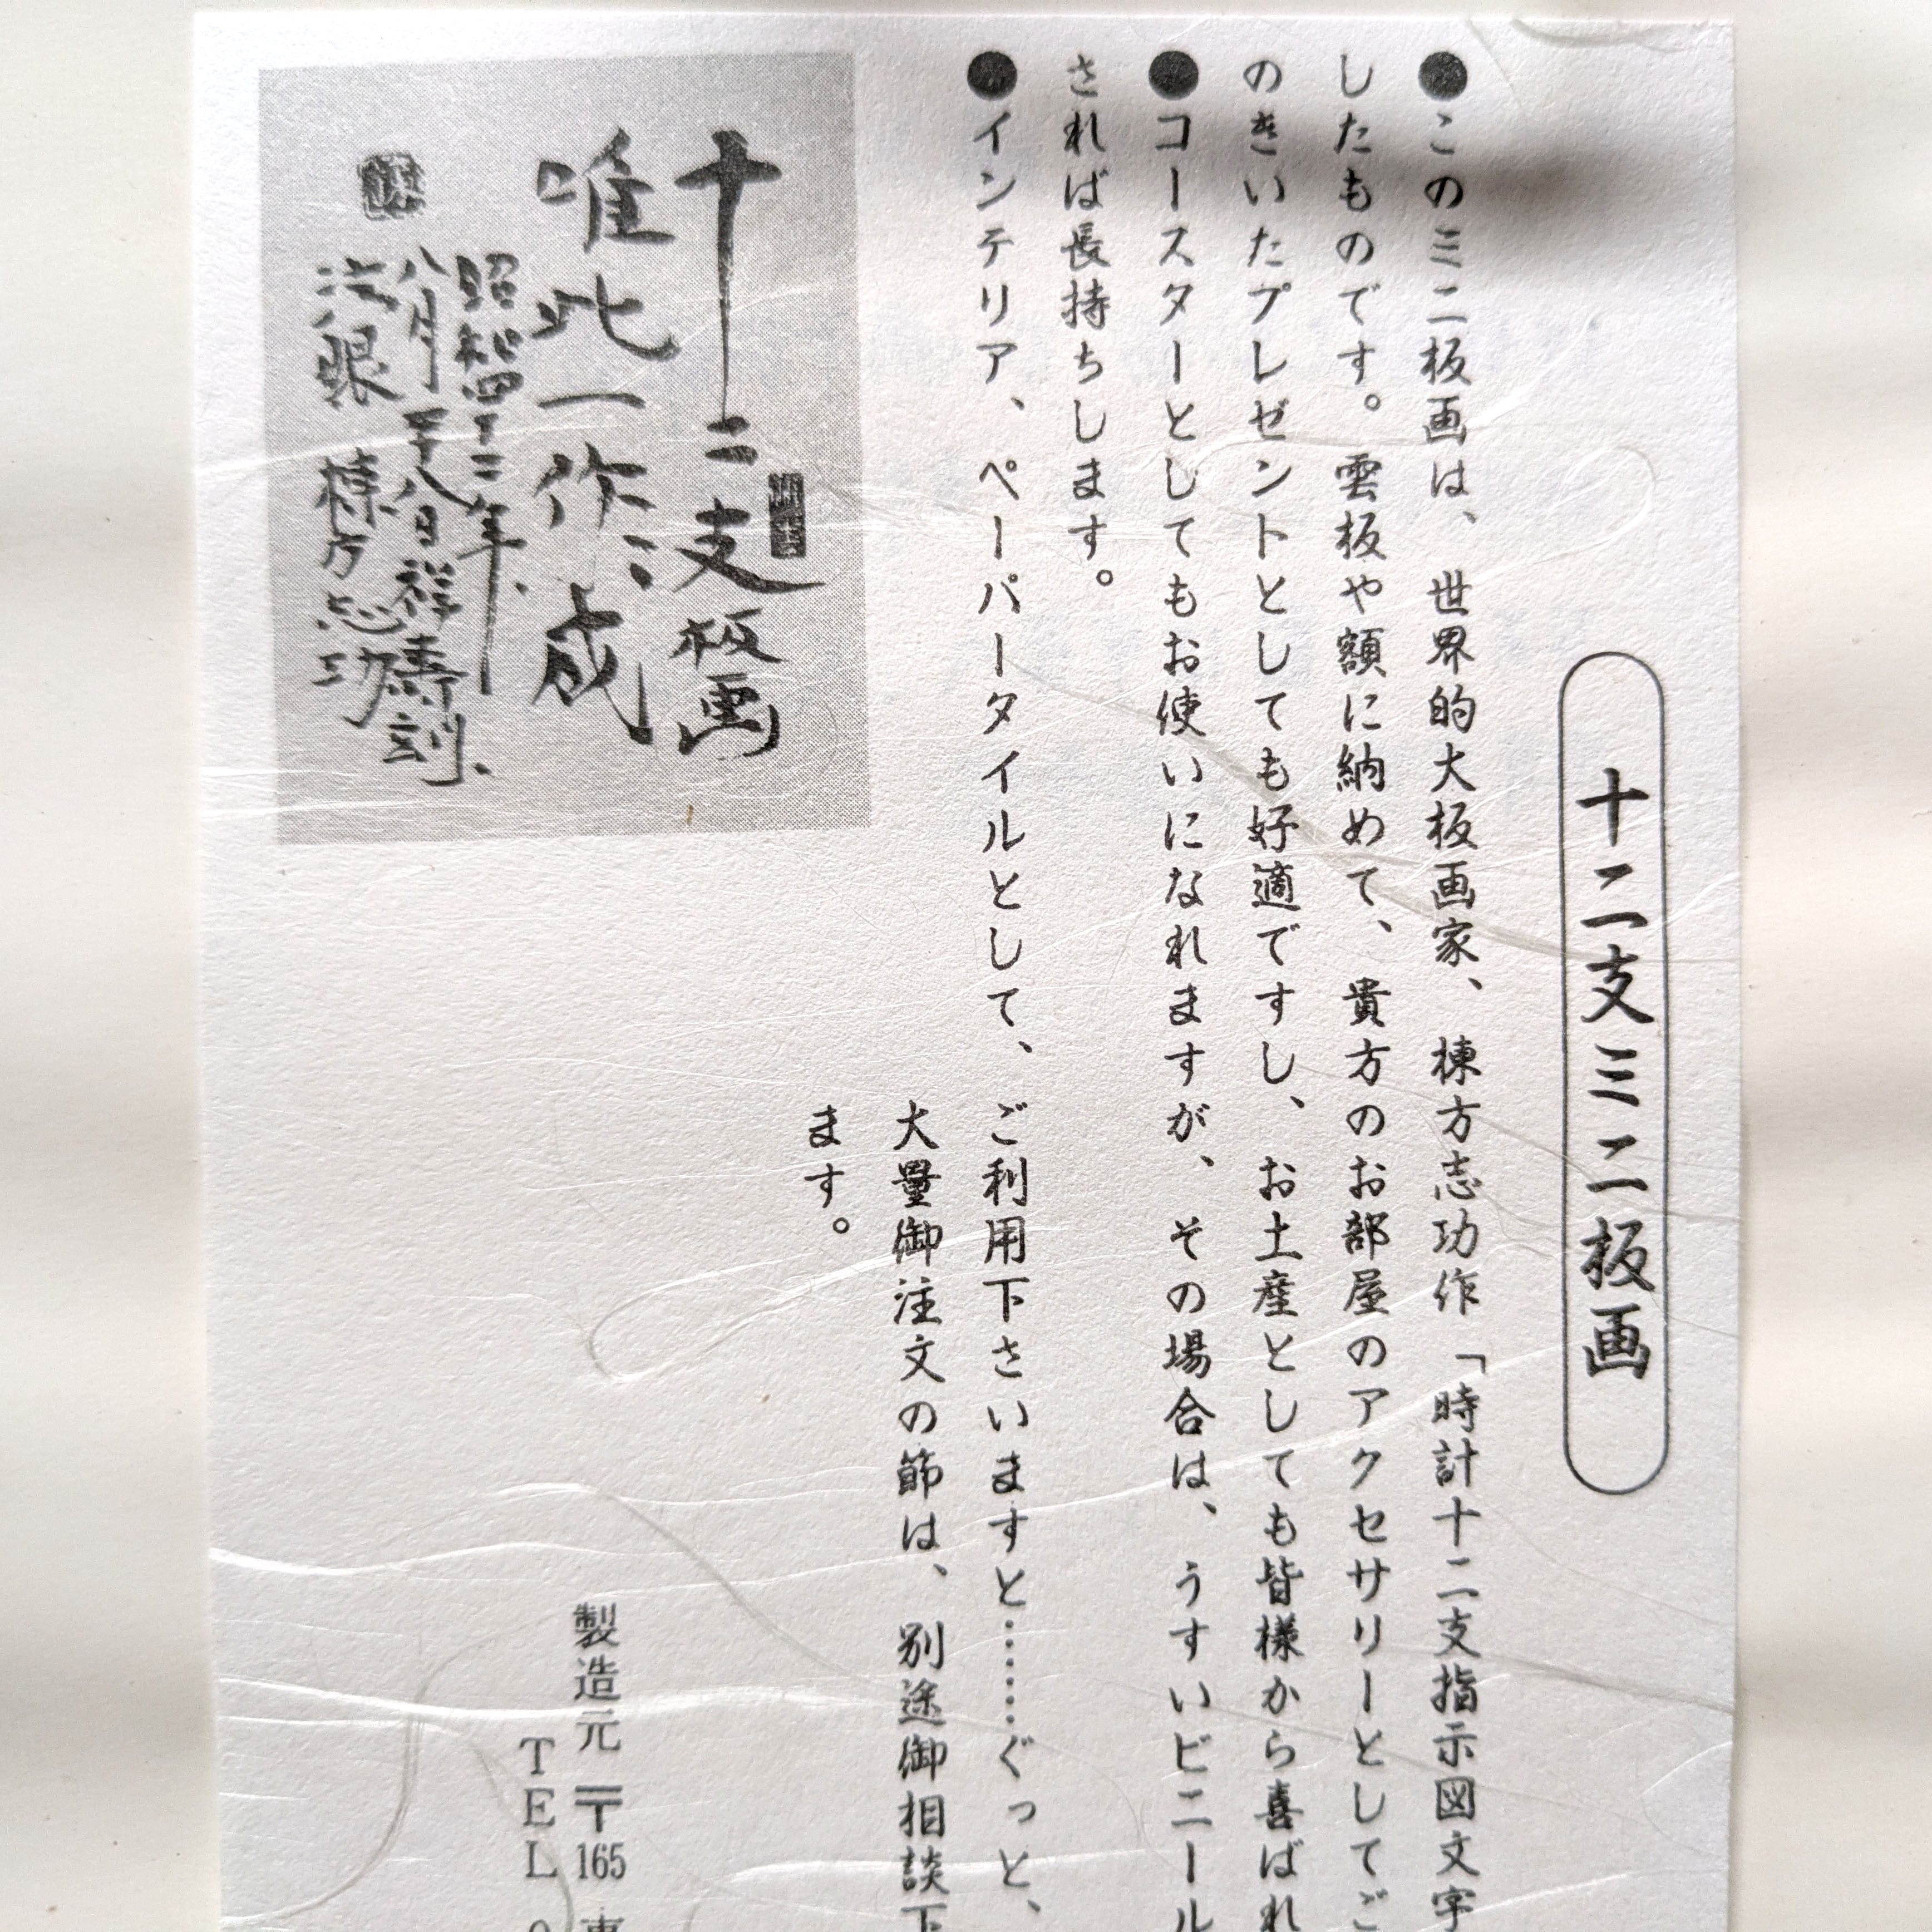 十二支ミニ板画
●このミニ板画は、世界的大板画家、棟方志功作「時計十二支指示図文字
したものです。雲板や額に納めて、貴方のお部屋のアクセサリーとしてご
のきいたプレゼントとしても好適ですし、お土産としても皆様から喜ばれ
●コースターとしてもお使いになれますが、その場合は、うすいビニール
されば長持ちします。
●インテリア、ペーパータイルとして、ご利用下さいますと……ぐっと、
大量御注文の節は、別途御相談下
ます。
十二支板画
唯此一作成
昭和四十二年、
八月二十八日祥寿刻、
法眼 棟方志功
製造元 〒165 東
TEL 0